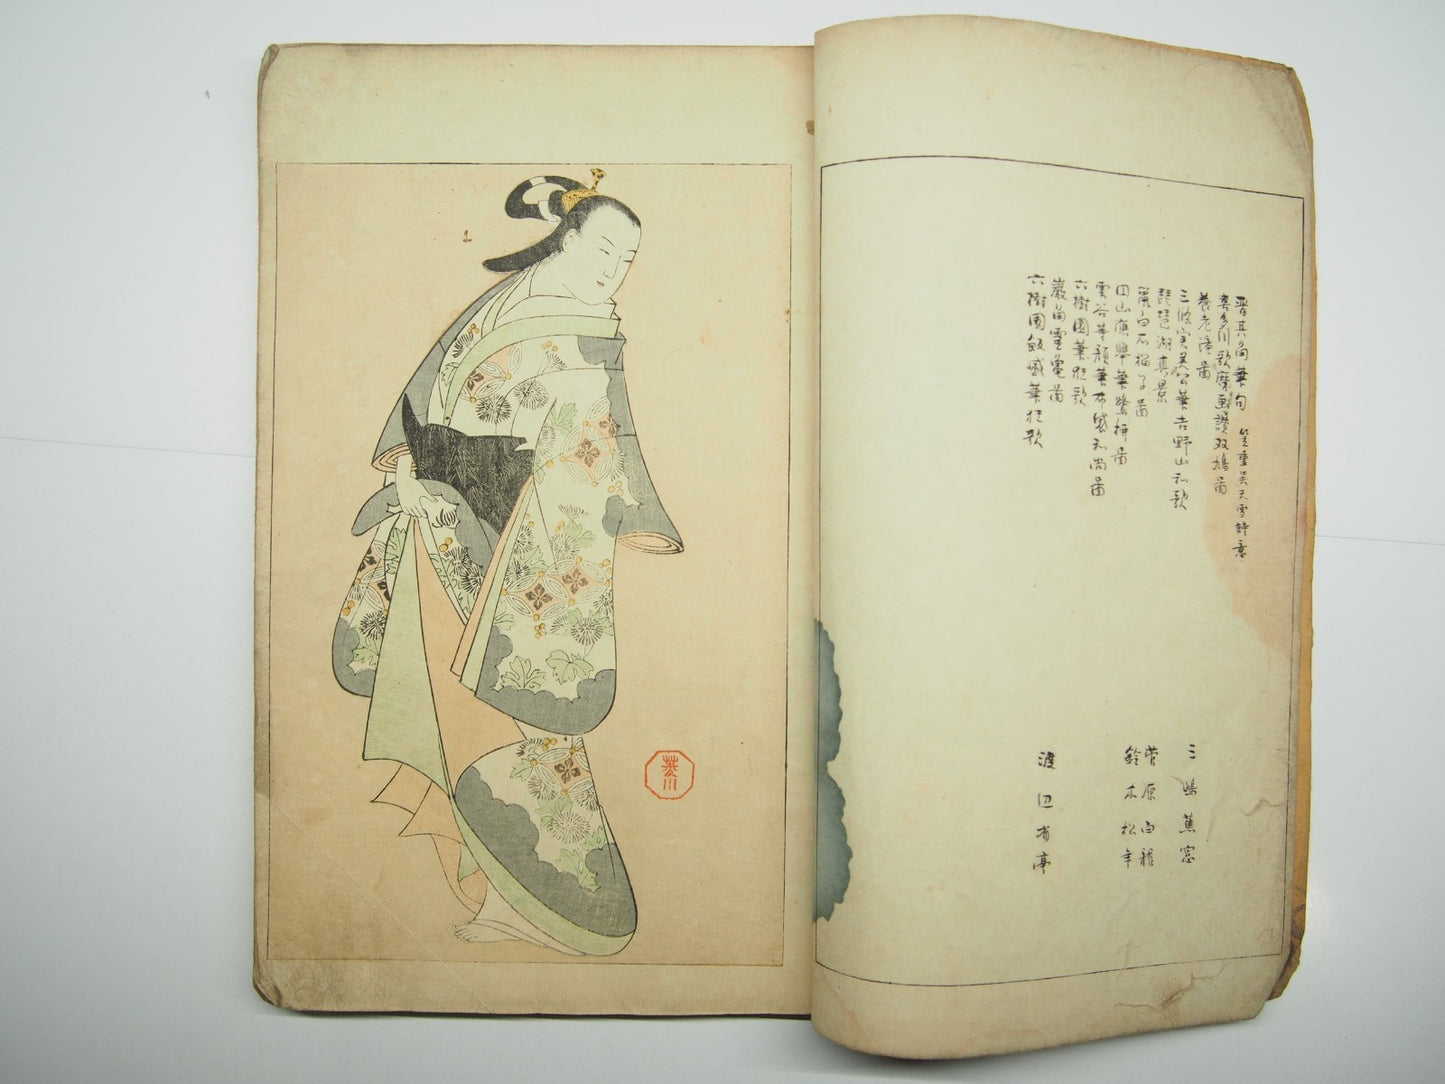 晋其角筆句 笠重呉天雪詩意
喜多川歌麿画讃双鳩啚
養老滝啚
三條実美公筆吉野山和歌
琵琶湖真景
菊白石猫子啚
円山應挙筆鷺拼啚
雲谷等顔筆布袋和尚啚
六樹園筆狂歌
巌苗霊亀啚
六樹園飯盛筆狂歌
三嶋蕉窓
菅原白龍
鈴木松年
渡辺省亭
菱川